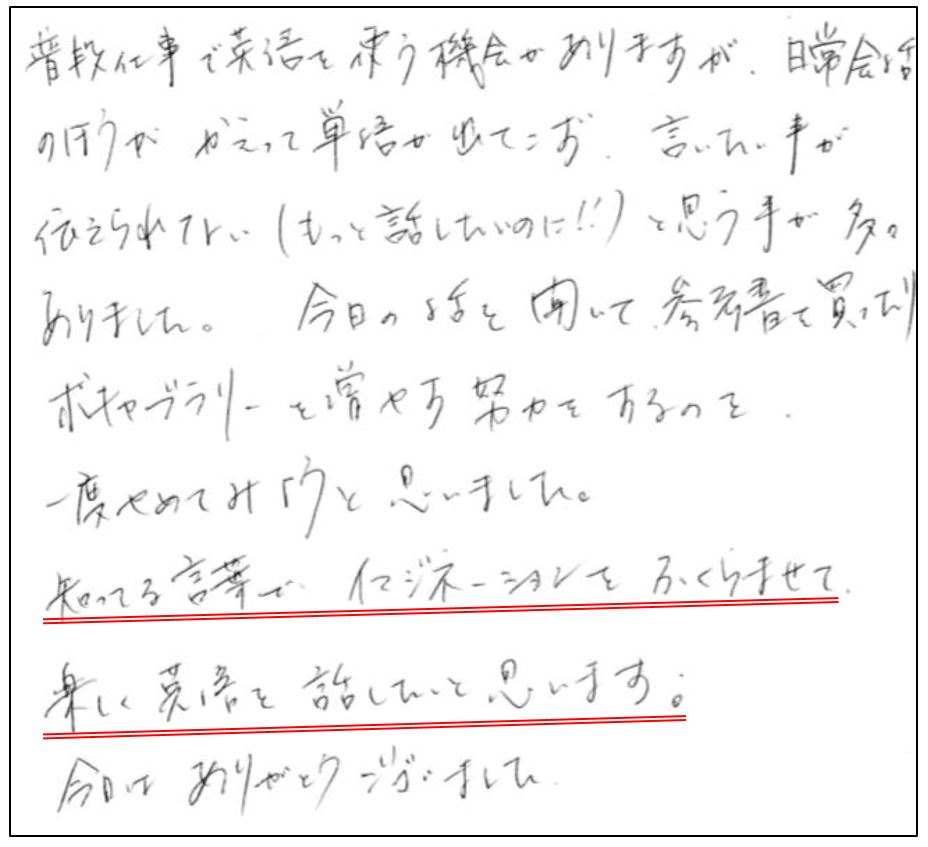 普段仕事で英語を使う機会がありますが、日常会話
のほうが かえって単語が出てこず、言いたい事が
伝えられてない(もっと話したいのに!!)と思う事が多々
ありました。 今日の話を聞いて、参考書を買ったり
ボキャブラリーを増やす努力をするのを、
一度やめてみようと思いました。
知ってる言葉で、イマジネーションをふくらませて、
楽しく英語を話したいと思います。
今日は ありがとうございました。